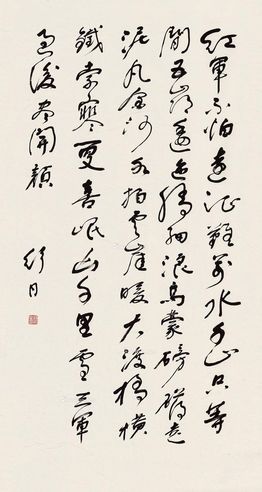 紅軍不怕遠征難萬水千山只等
閒五嶺逶迤騰細浪烏蒙磅礴走
泥丸金沙水拍雲崖暖大渡橋橫
鐵索寒更喜岷山千里雪三軍
過後盡開顏